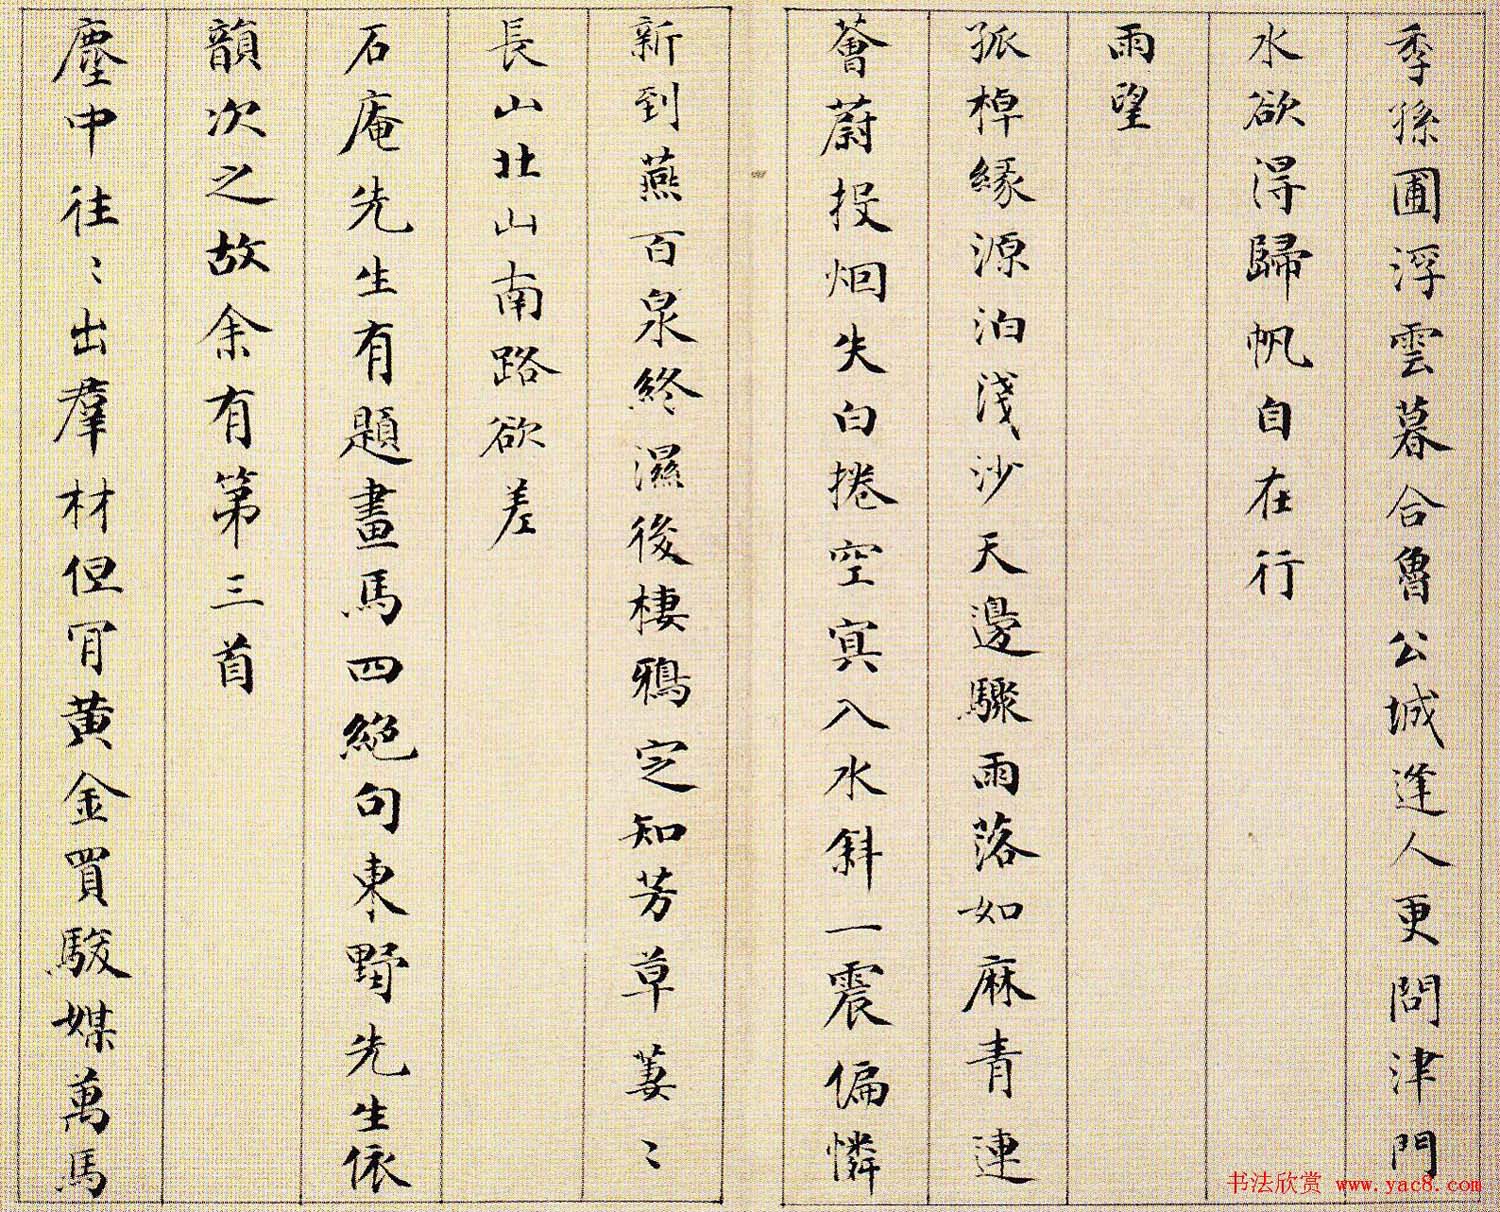 季孫圃浮雲暮合魯公城逢人更問津門
水欲得歸帆自在行
雨望
孤棹緣源泊淺沙天邊驟雨落如麻青連
薈蔚投烟失白捲空冥入水斜一震偏憐
新到燕百泉終濕後棲鴉定知芳草萋〻
長山北山南路欲差
石庵先生有題畫馬四絕句東野先生依
韻次之故余有第三首
塵中往〻出羣材但買黃金買駿媒萬馬
书法欣赏 www.yac8.com